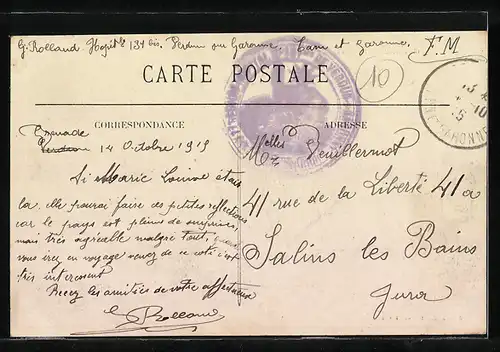 G. Rolland Hopital 134 bis. Verdun sur Garonne. Tarn et Garonne. F.M
10
CARTE POSTALE
CORRESPONDANCE
ADRESSE
Grenade
Verdun 14 Octobre 1915
Si Marie Louise était
là elle pourai faire des petites réflections
car le pays est pleins de surprises,
mais très agréable malgré tout, quand
vous irez en voyage venez de ce coté c'est
très interessent
Recez les amitiées de votre affectueux
G Rolland
Melles Feuillermot
41 rue de la Liberté 41a
Salins les Bains
Jura